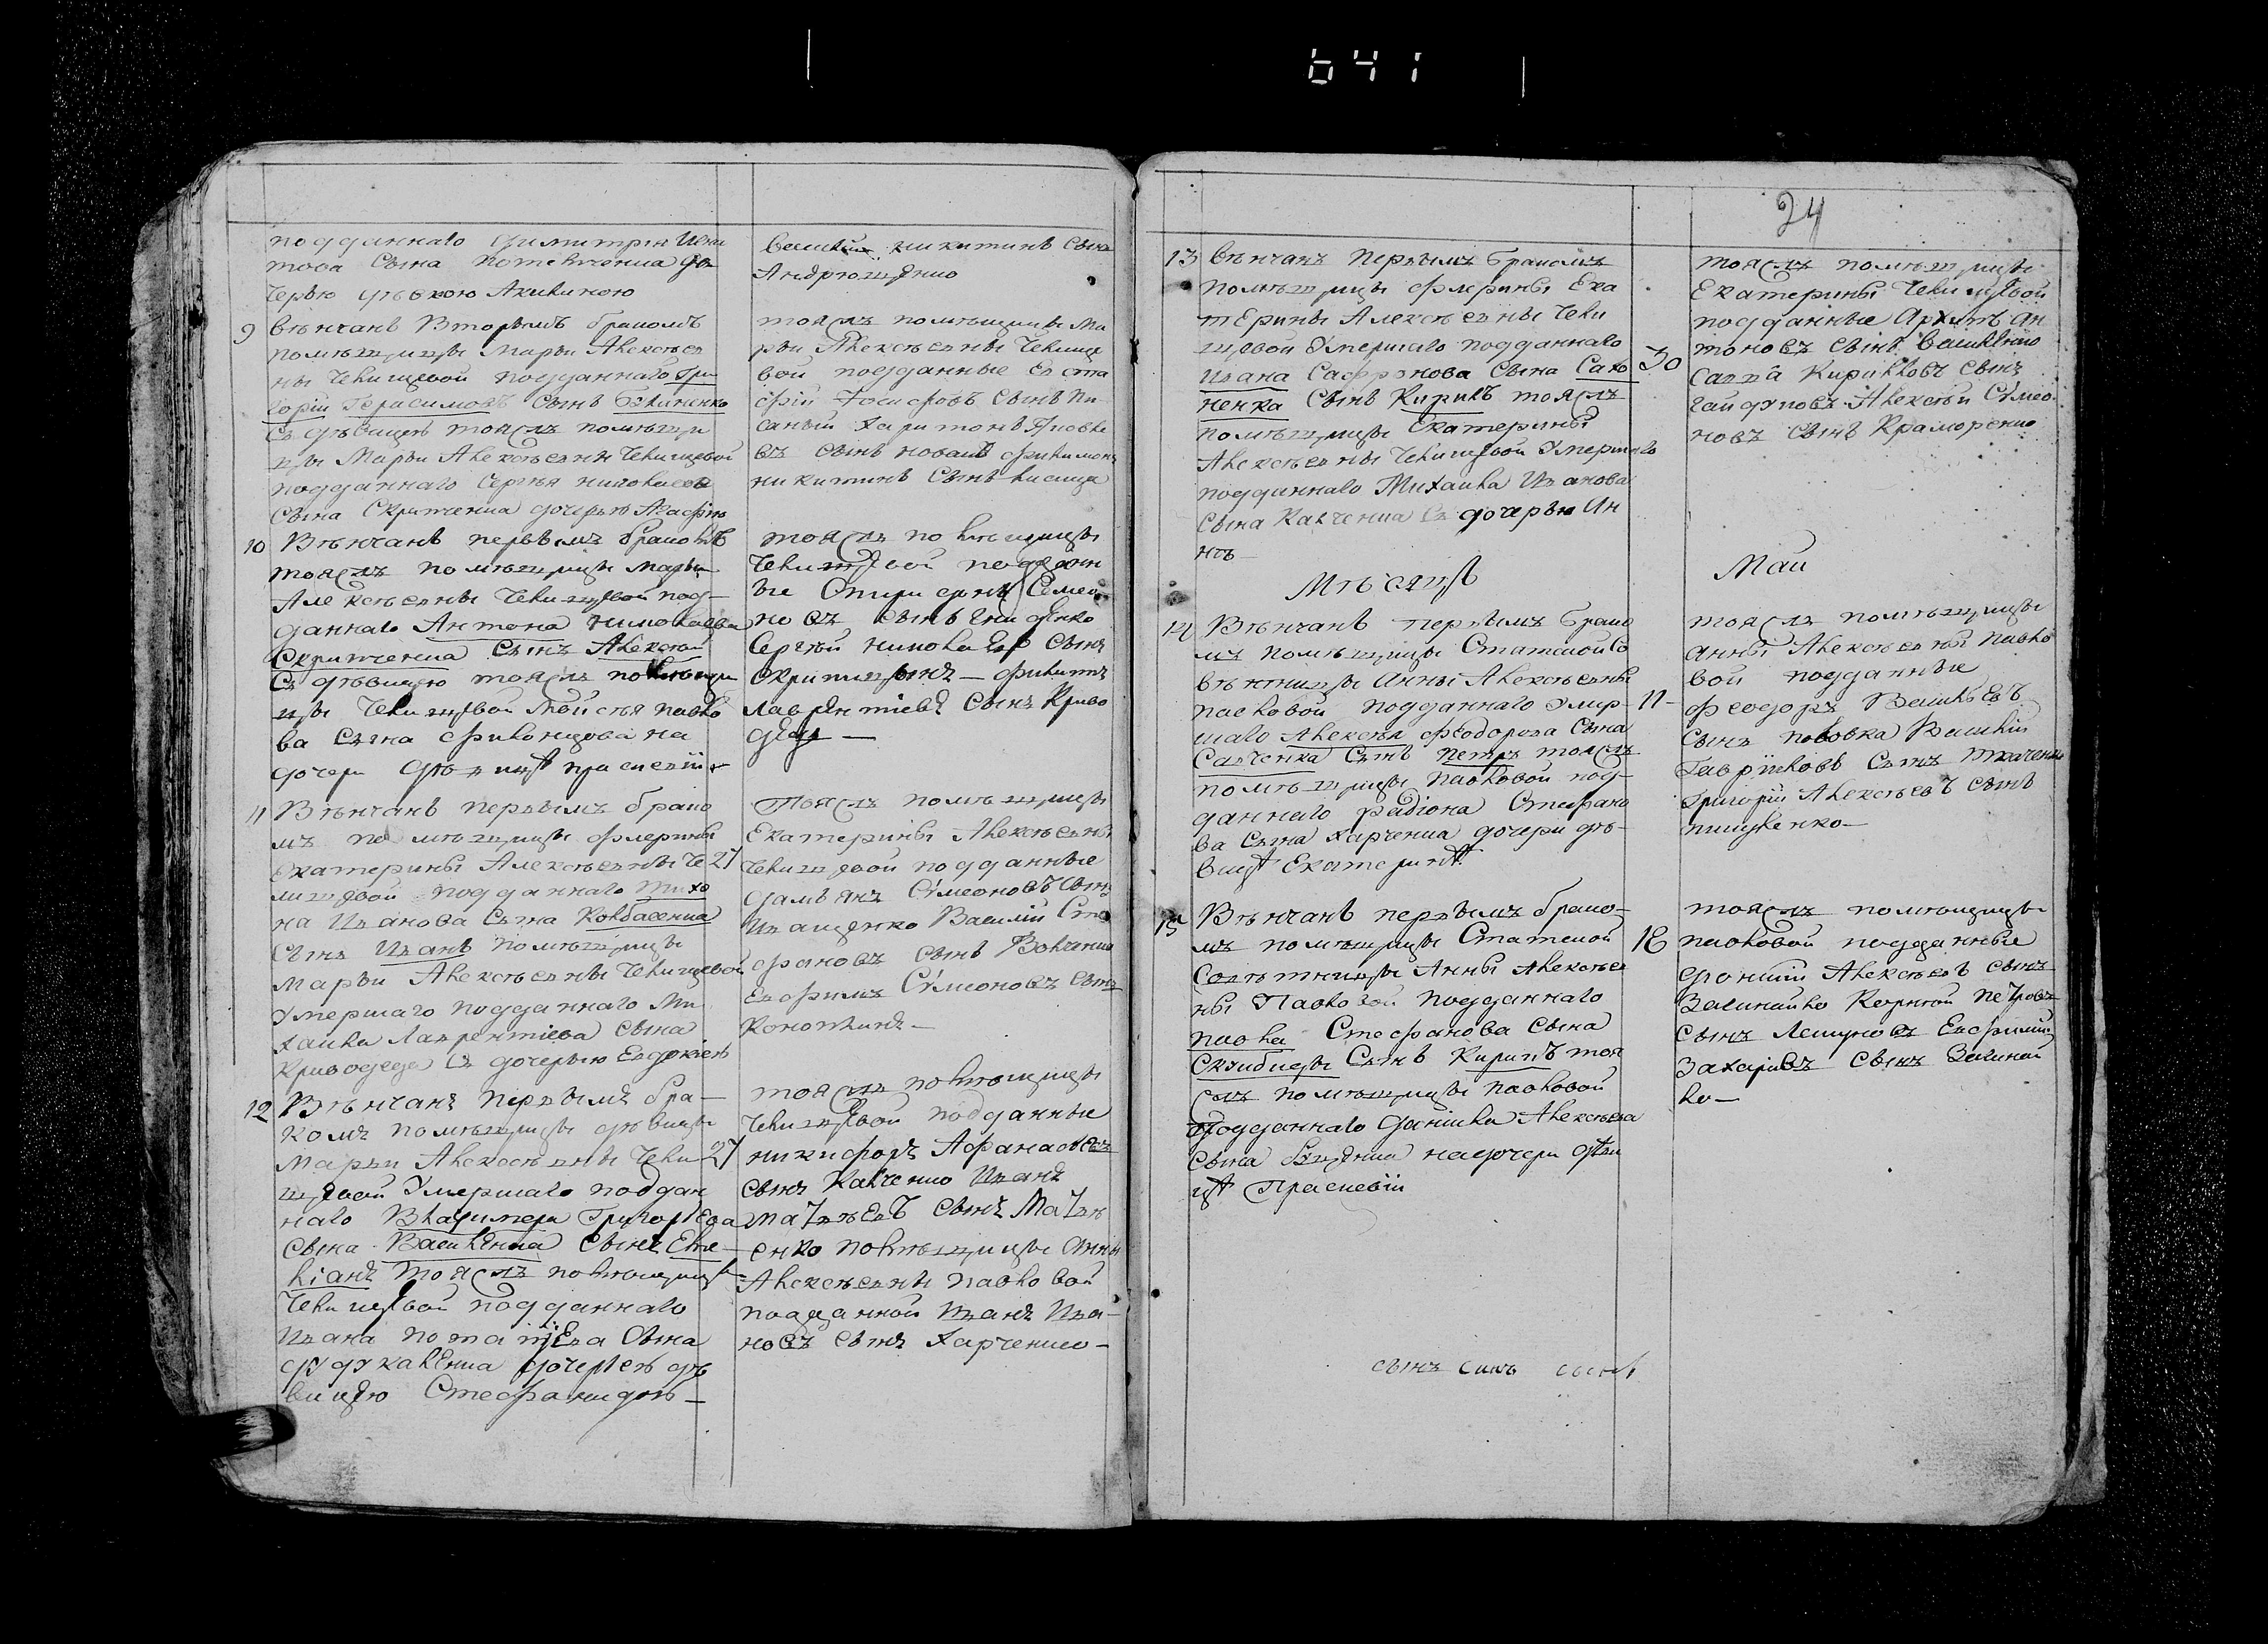 641
подданнаго Димитрія Ики
това Сына Потенченка до
черью дѣвкою Акилиною
9 вѣнчанъ Вторымъ бракомъ
помѣщицы Марьи Алексѣев
ны Чекищевой подданнаго Гри
горій Герасимовъ Сынъ
съ дѣвицею тояжъ помѣщи
цы Марьи Алексѣевны Чекищевой
подданнаго Сергѣя николаева
Сына Скритченка дочерью Агафію
10 Вѣнчанъ первымъ бракомъ
тояжъ помѣщицы Марьи
Алексѣевны Чекищевой под-
даннаго Антона николаева
Скритченка Сынъ Алексѣй
съ дѣвицею тояжъ помѣщи
цы Чекищевой Мойсѣя павло
ва Сына Филонцова на
дочери дѣвицѣ праскевіи
11 Вѣнчанъ первымъ брако
мъ помѣщицы флерины
Екатерины Алексѣевны Че 27
кищевой подданнаго Тихо
на Иванова Сына Колбасенка
Сынъ Иванъ помѣщицы
Марьи Алексѣевны Чекищевой
Умершаго подданнаго Ми
хаила Лаврентіева Сына
Криводеда съ дочерью Евдокіею
12 Вѣнчанъ первымъ бра-
комъ помѣщицы дѣвицы
Марьи Алексѣевны Чеки 27
щевой Умершаго поддан
наго Владимера Григорьева
Сына Василенка Сынъ Еме-
ліанъ тояжъ помѣщицы
Чекищевой подданнаго
Ивана потапіева Сына
дудукаленка дочерью дѣ
вицею Стефанидою-
Василій никитинъ Сынъ
Андрющенко
тояжъ помѣщицы Ма
рьи Алексѣевны Чекище
вой подданные Евста
фій Іосифовъ Сынъ Пи
саный Харитонъ Яковле
въ Сынъ коваль филимонъ
никитинъ Сынъ лисица
тояжъ помѣщицы
Чекищевой поддан
ые Спиридонъ Семео
новъ Сынъ
Сергѣй николаевъ Сынъ
Скритченъ — филипъ
Лаврентіевъ Сынъ Криво
дедъ —
Тояжъ помѣщицы
Екатерины Алексѣевны
Чекищевой подданные
дамьянъ Симеоновъ Сынъ
Иващенко Василій Сте
фановъ Сынъ
Евфимъ Симеоновъ Сынъ
Коноплинъ —
тояжъ помѣщицы
Чекищевой подданные
никифоръ Афанасьевъ
Сынъ Калченко Иванъ
Матвѣевъ Сынъ Матвѣ
енко помѣщицы Анны
Алексѣевны павловой
подданной Иванъ Ива-
новъ Сынъ Харченко-
24
13 Вѣнчанъ первымъ бракомъ
помѣщицы флерины Ека
терины Алексѣевны Чеки
щевой Умершаго подданнаго 30
Ивана Сафронова Сына Сахо
ненка Сынъ Кирилъ тояжъ
помѣщицы Екатерины
Алексѣевны Чекищевой Умершаго
подданнаго Михаила Иванова
Сына Калченка съ дочерью Ин
нѣ
Мѣсяцъ
14 Вѣнчанъ первымъ брако
мъ помѣщицы Статской Со
вѣтницы Анны Алексѣевны
павловой подданнаго Умер- 11-
шаго Алексѣя феодорова Сына
Савченка Сынъ Петръ тояжъ
помѣщицы павловой под-
даннаго радіона Стефано
ва Сына Харченка дочери дѣ-
вицѣ Екатеринѣ
15 Вѣнчанъ первымъ брако-
мъ помѣщицы Статской 18
Совѣтницы Анны Алексѣев
ны Павловой подданнаго
павла Стефанова Сына
Скибицы Сынъ Кирилъ тоя
жъ помѣщицы павловой
подданнаго Даніила Алексѣева
Сына на дочери дѣви
цѣ Праскевіи
сынъ сынъ сынъ
тояжъ помѣщицы
Екатерины Чекищевой
подданные Архипъ Ан
тоновъ Сынъ Василенко
Савва Кириловъ Сынъ
Гайдуковъ Алексѣй Симео
новъ Сынъ Краморенко
Маи
тояжъ помѣщицы
анны Алексѣевны павло
вой подданные
феодоръ Васильевъ
Сынъ половка Василій
Гавриловъ Сынъ Ткаченко
Григорій Алексѣевъ Сынъ
тояжъ помѣщицы
павловой подданные
Алексѣевъ Сынъ
Корнѣй петровъ
Сынъ Евфимій
Захаріевъ Сынъ
ко-